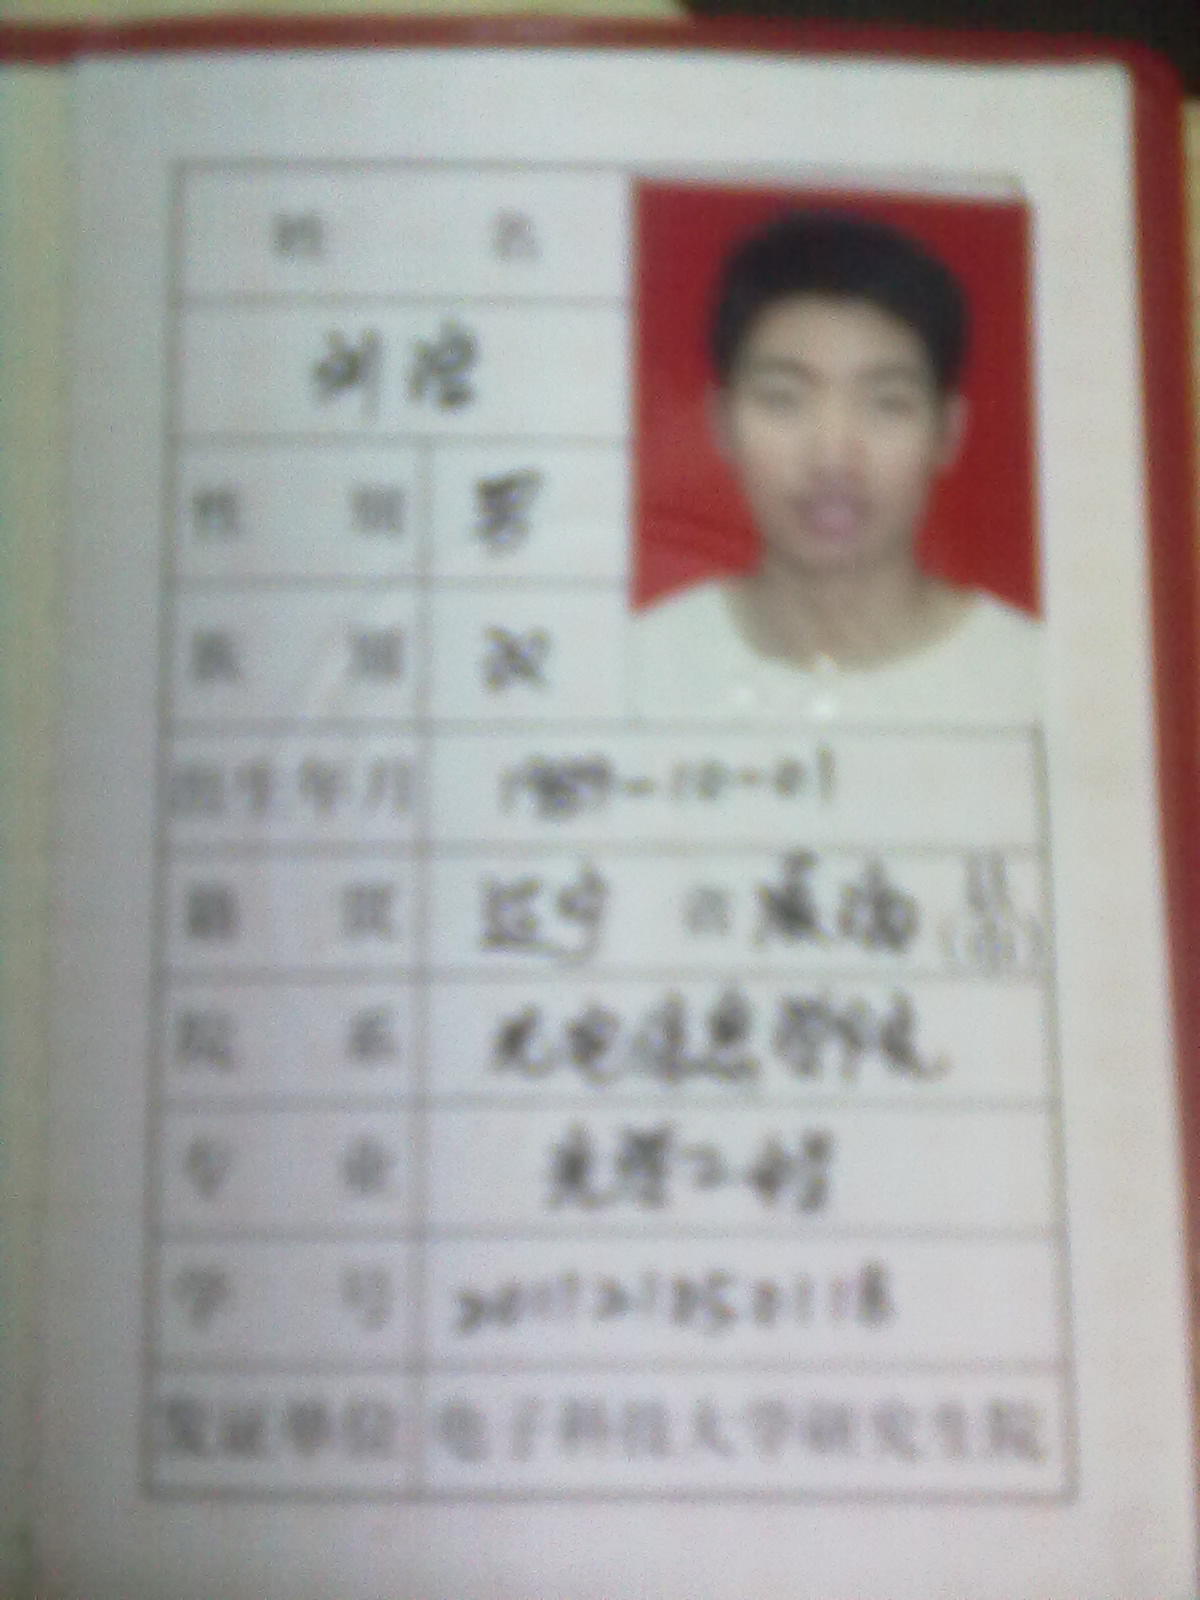 姓 名
刘
性 别 男
族 别 汉
出生年月 1989-10-01
籍 贯 辽宁 省 县(市)
院 系 光电信息学院
专 业 光学工程
学 号
发证单位 电子科技大学研究生院